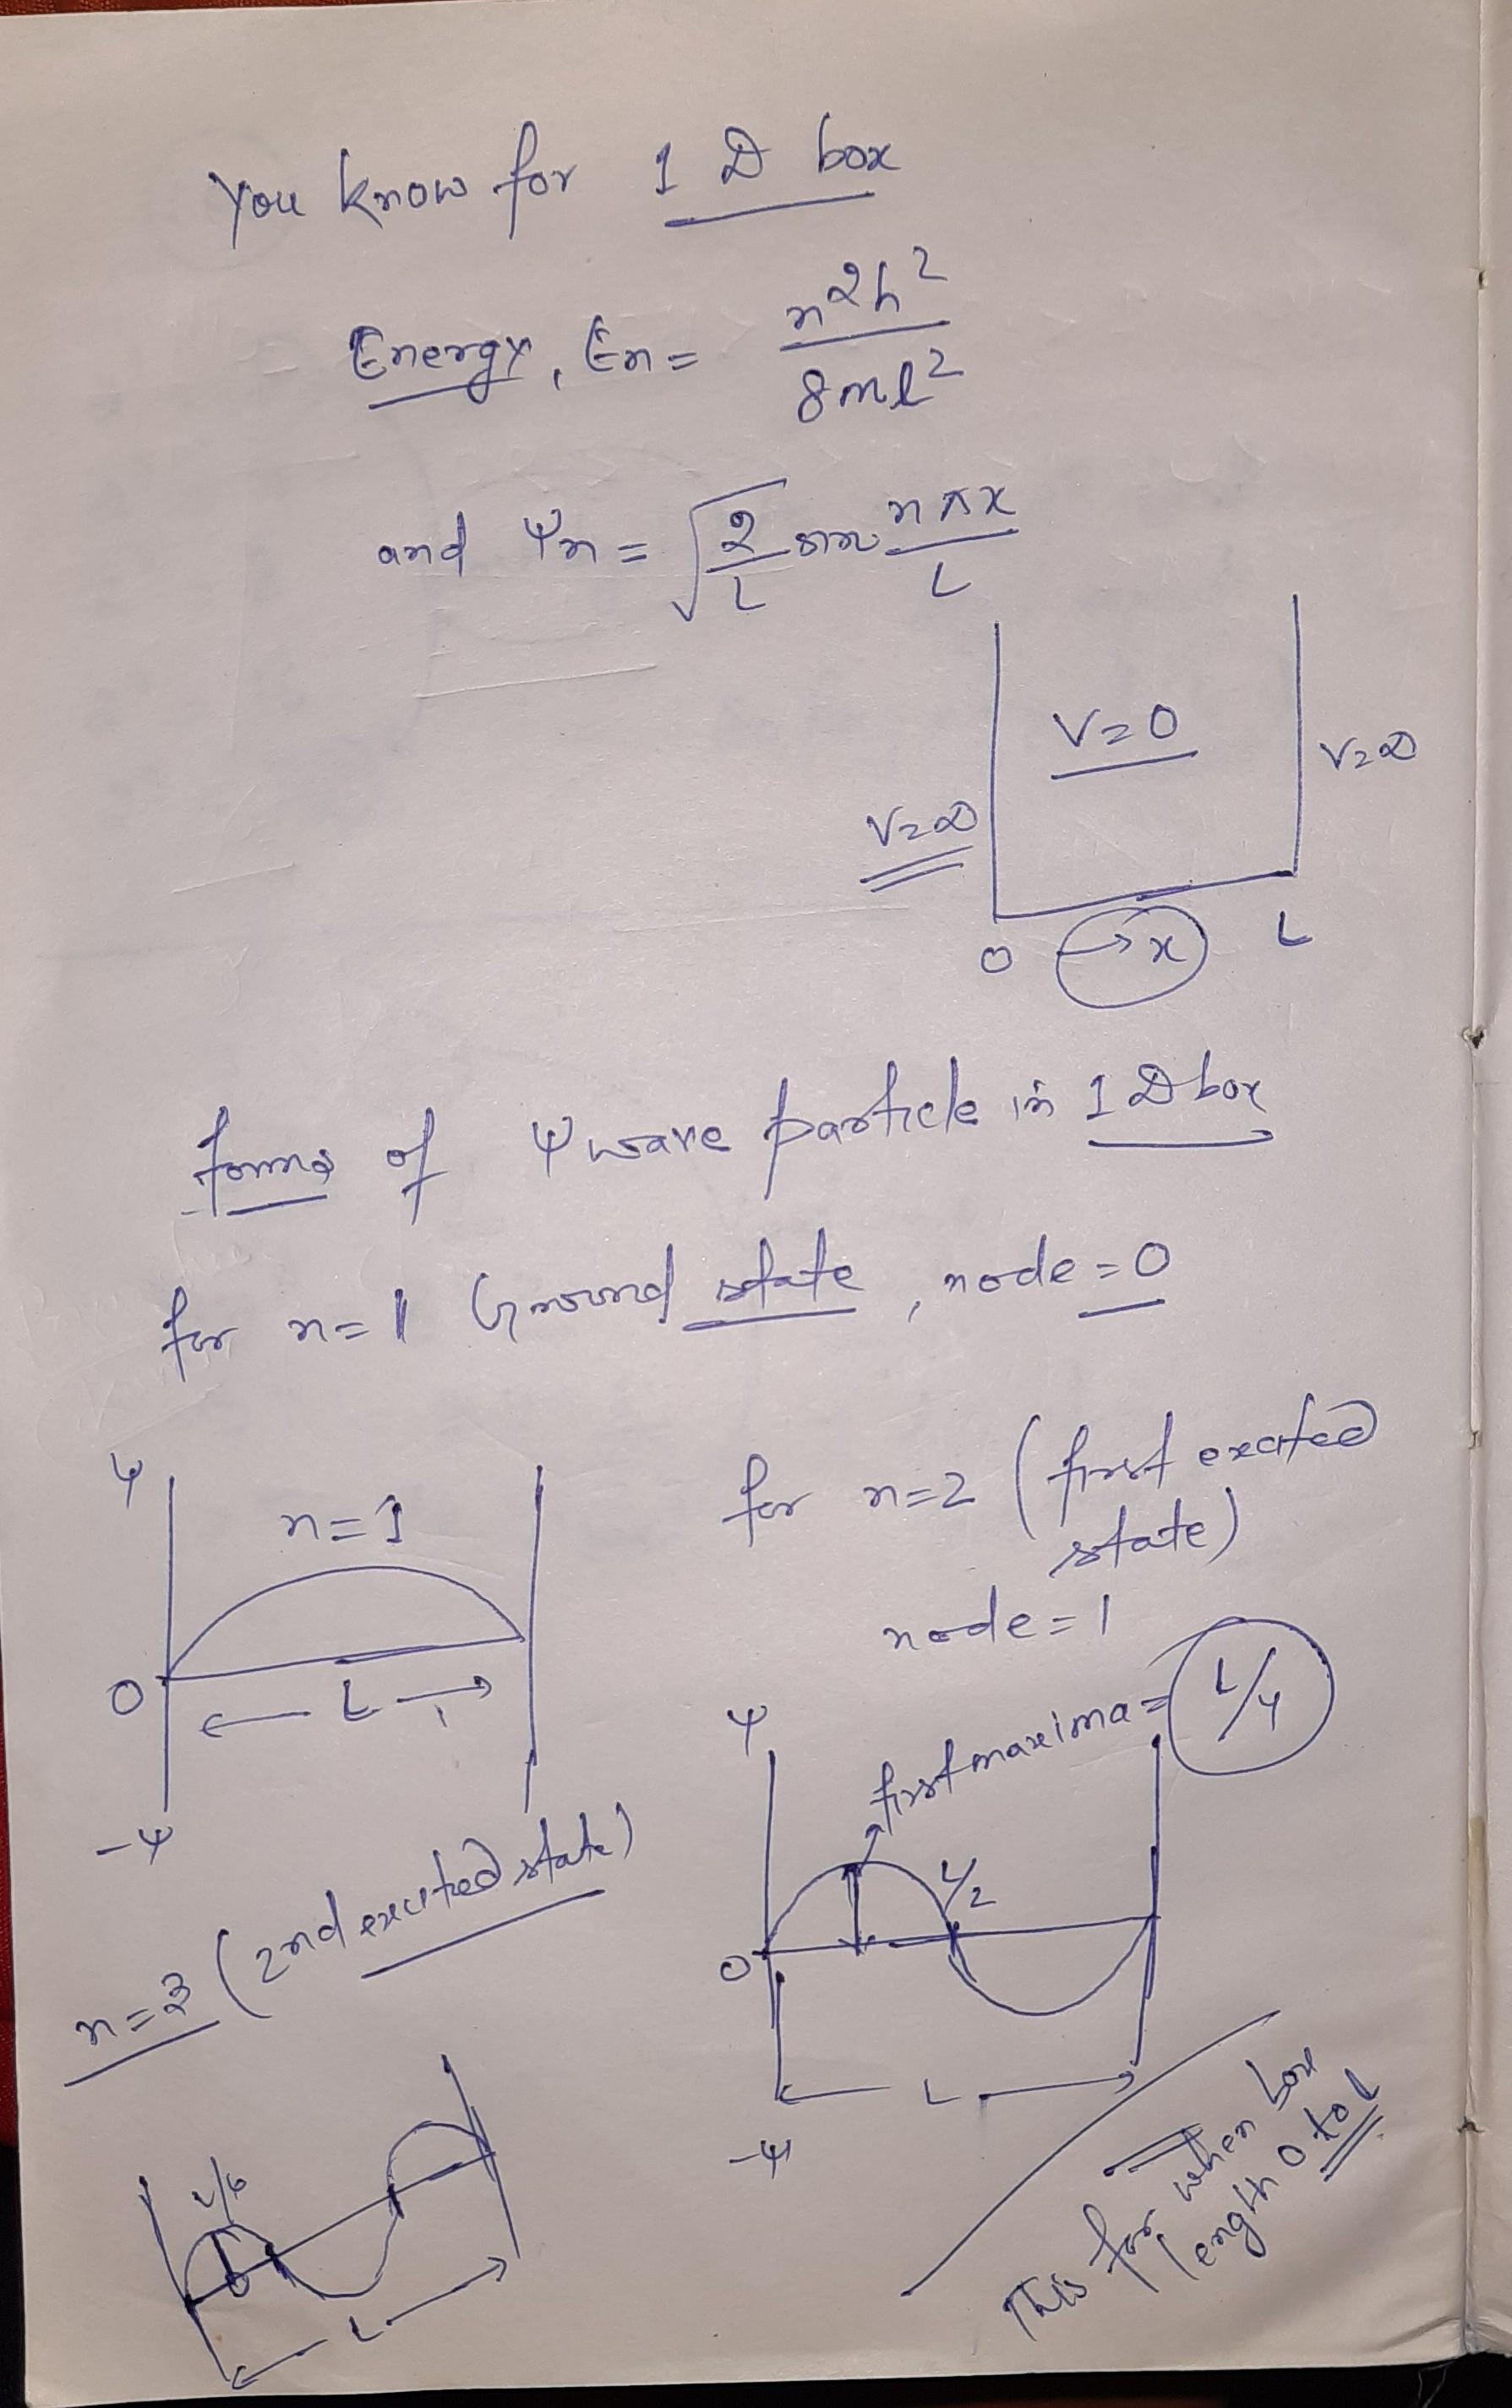 You know for 1 D box
Energy, En = n²h² / 8ml²
and Ψn = √(2/L) sin nπx/L
V=0
V=∞
V=∞
0 → x L
forms of Ψ wave particle in 1 D box
for n=1 Ground state, node=0
Ψ
n=1
0
← L →
-Ψ
for n=2 (first excited
state)
node=1
first maxima = L/4
Ψ
L/2
0
← L →
-Ψ
n=3 (2nd excited state)
L/6
← L →
This for when box
length 0 to l